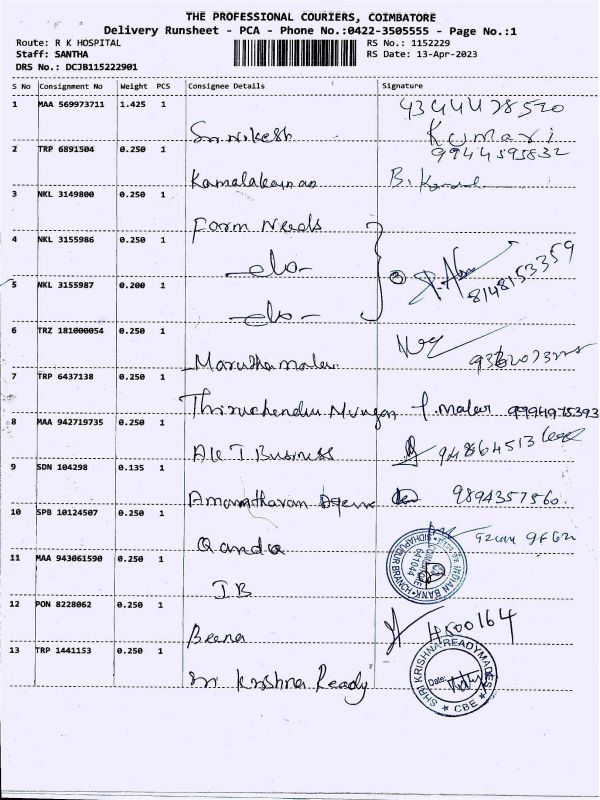 THE PROFESSIONAL COURIERS, COIMBATORE
Delivery Runsheet - PCA - Phone No.:0422-3505555 - Page No.:1
Route: R K HOSPITAL
Staff: SANTHA
DRS No.: DCJB115222901
RS No.: 1152229
RS Date: 13-Apr-2023
S No Consignment No Weight PCS Consignee Details Signature
1 MAA 569973711 1.425 1
Kumari
2 TRP 6891504 0.250 1
9944595832
Kamalakannan
3 NKL 3149800 0.250 1
Farm Needs
4 NKL 3155986 0.250 1
-do-
8148153359
5 NKL 3155987 0.200 1
-do-
6 TRZ 181000054 0.250 1
Maruthamalai
7 TRP 6437138 0.250 1
Thiruchendur Murugan
8 MAA 942719735 0.250 1
Business
9 SDN 104298 0.135 1
9894357560
10 SPB 10124507 0.250 1
11 MAA 943061590 0.250 1
INDIAN BANK
SIDHAPUDUR BRANCH
641044
IB
12 PON 8228062 0.250 1
Beena
4500164
13 TRP 1441153 0.250 1
Sri Krishna Ready
SHRI KRISHNA READYMADES
Date:
CBE